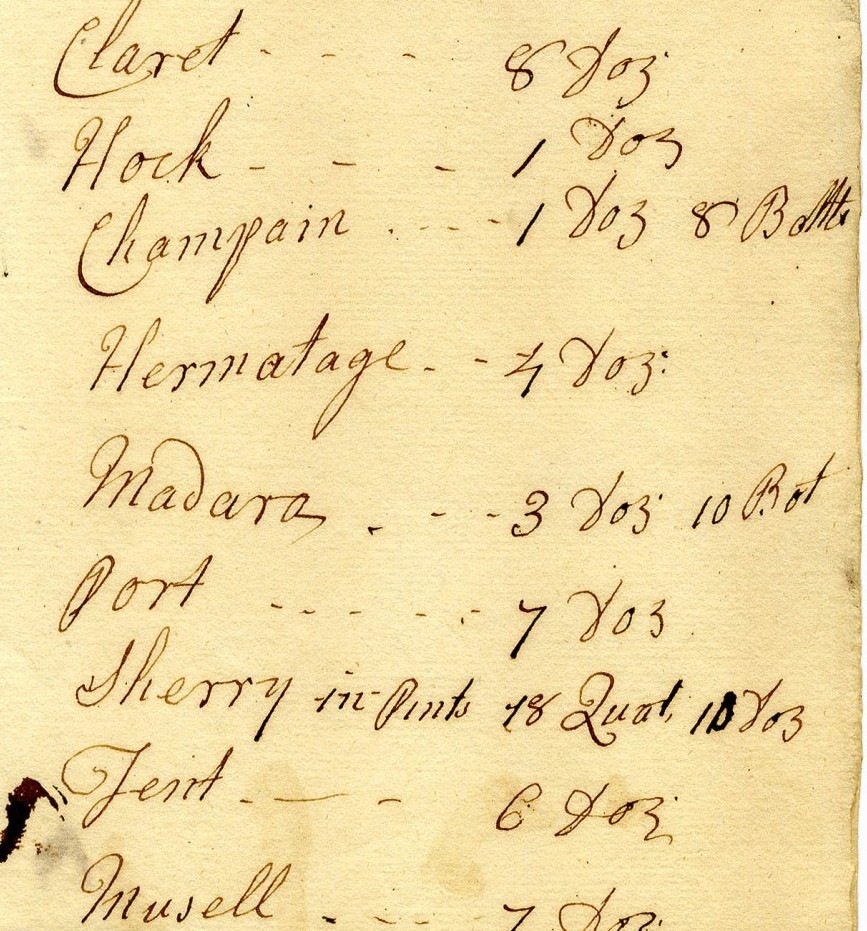 Claret - - - 8 Doz
Hock - - - 1 Doz
Champain - - - - 1 Doz 8 Bottls
Hermatage - - 4 Doz:
Madara - - - 3 Doz 10 Bot
Port - - - - - - 7 Doz
Sherry in Pints 18 Quat, Doz
Tent - - - 6 Doz
Musell - - - - 7 Doz